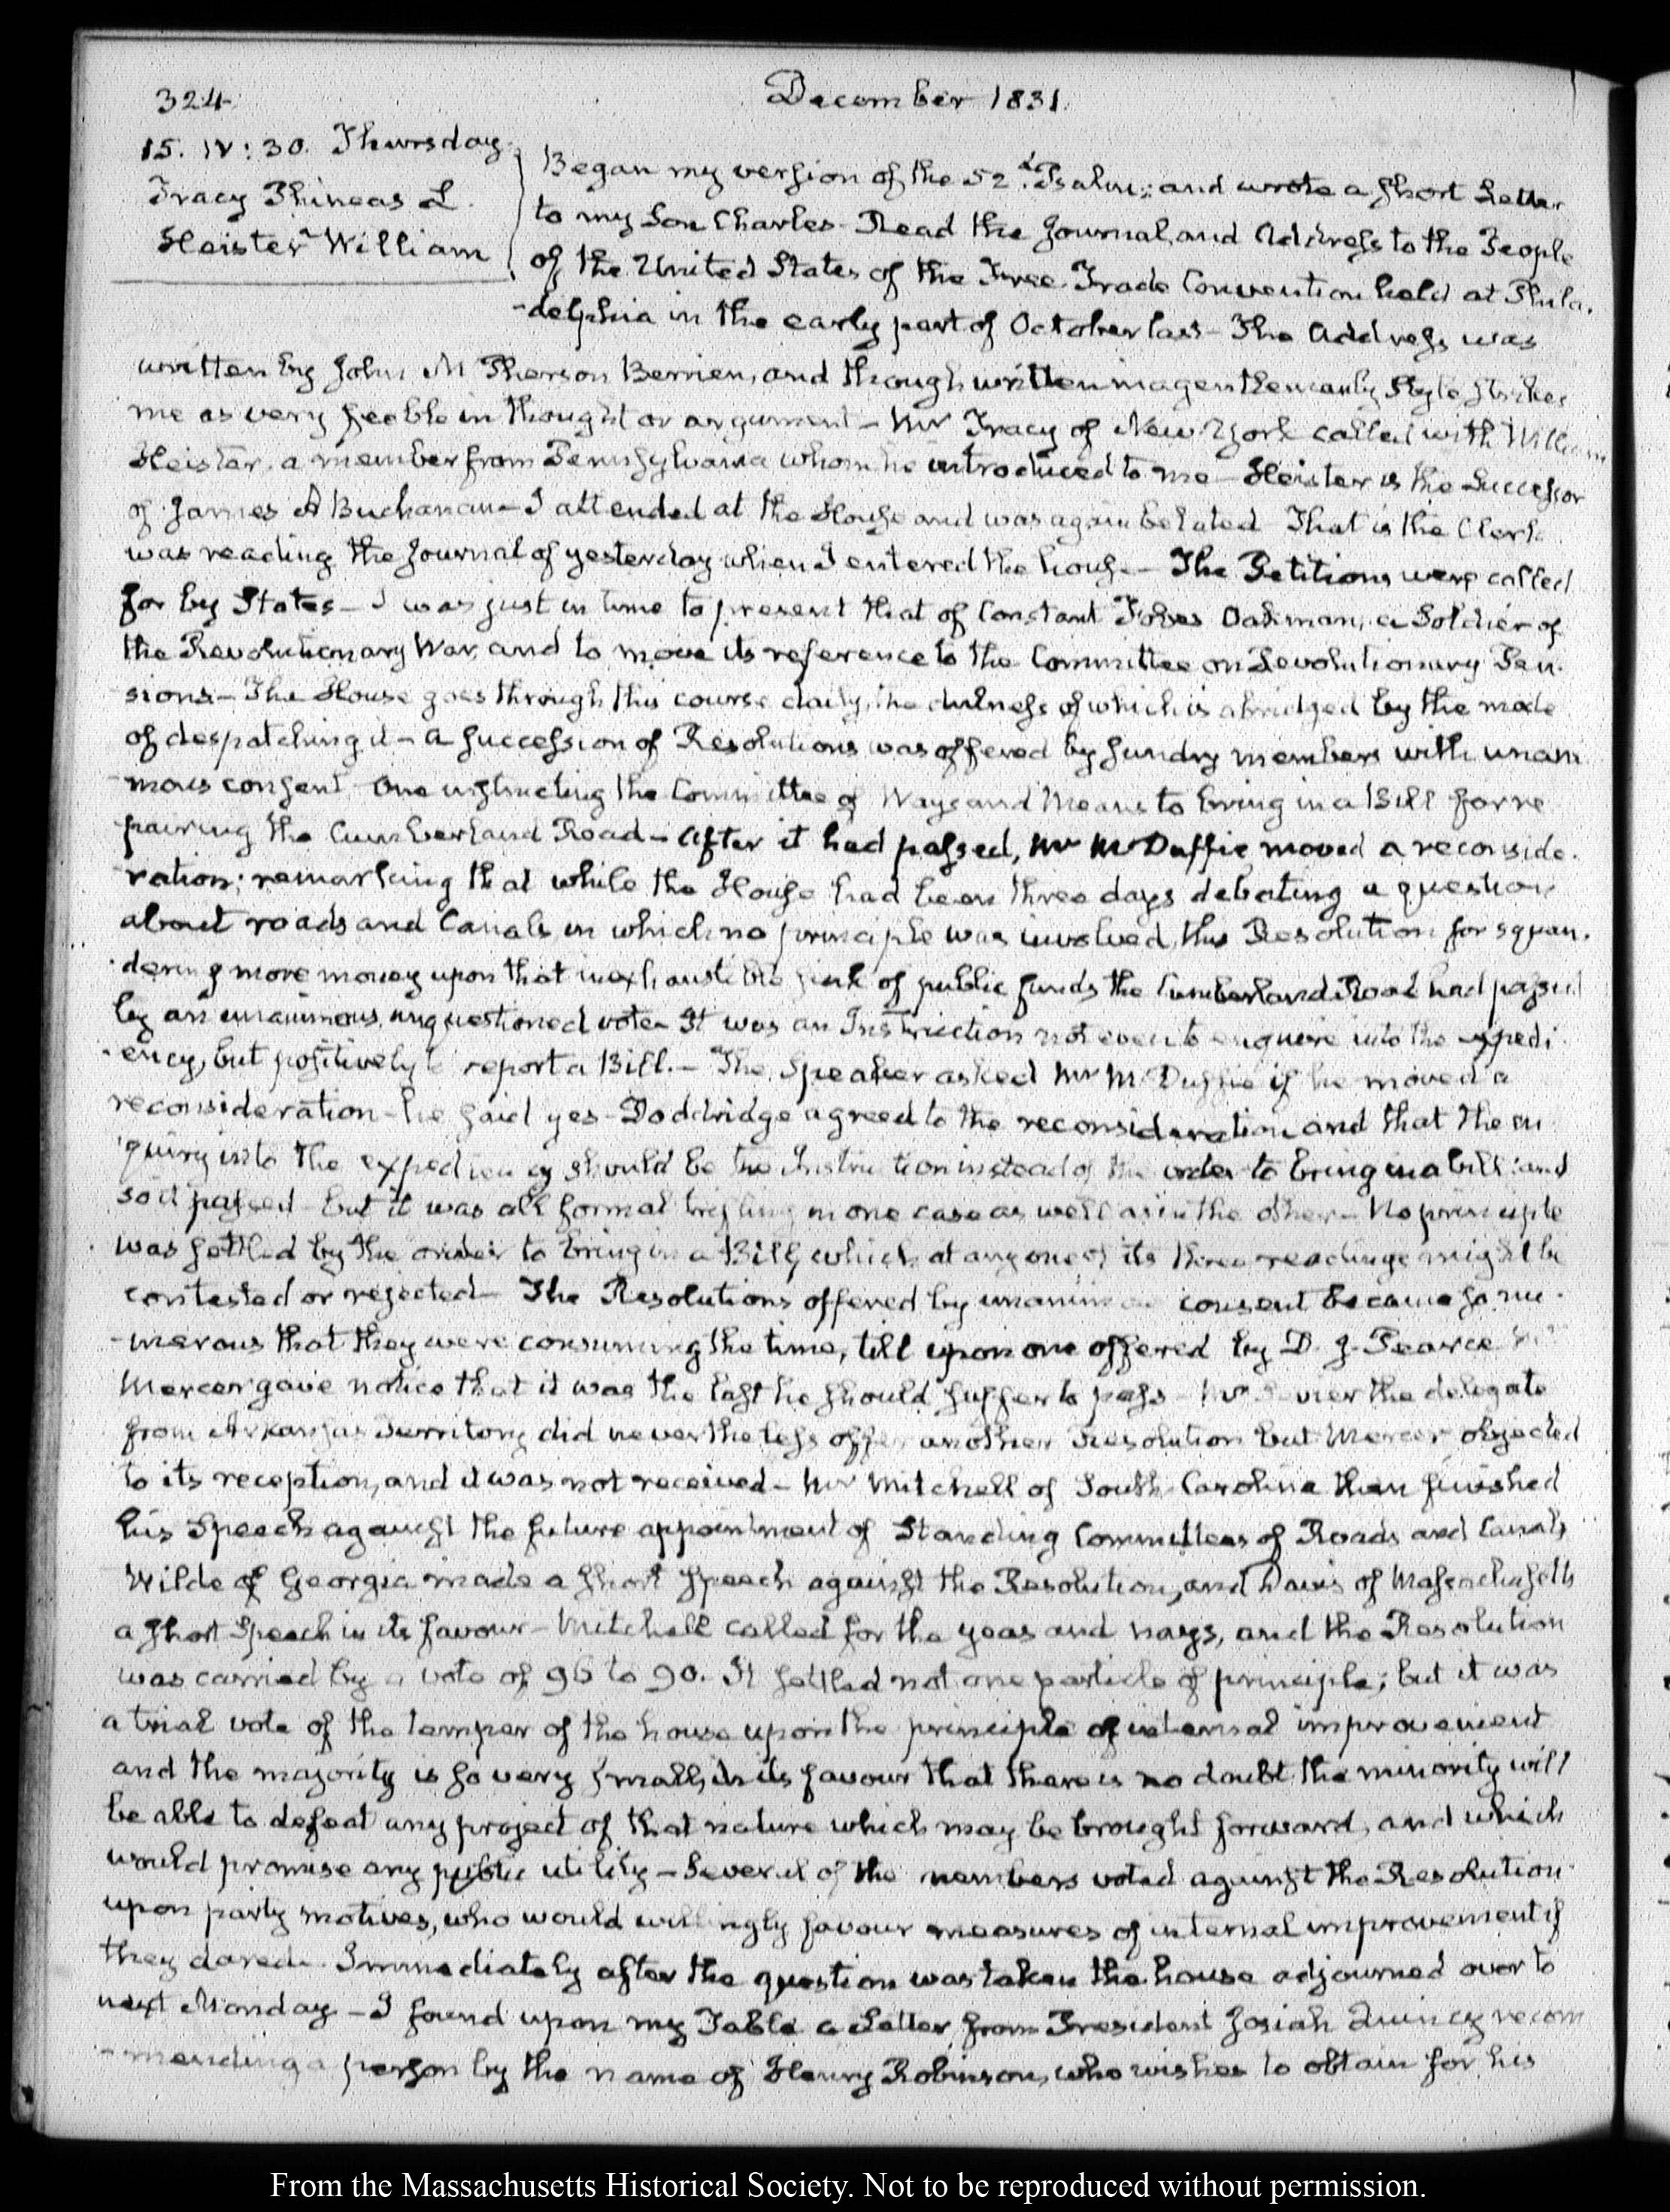 324.
December 1831.
15. IV: 30. Thursday.
Tracy Phineas L.
Heister William
Began my version of the 52.d Psalm; and wrote a short Letter
to my Son Charles. Read the Journal, and Address to the People
of the United States of the Free Trade Convention held at Phila-
-delphia in the early part of October last - The Address was
written by John M Pherson Berrien, and though written in a gentlemanly Style strikes
me as very feeble in thought or argument - Mr Tracy of New York called with William
Heister, a member from Pennsylvania whom he introduced to me - Heister is the Successor
of James A Buchanan - I attended at the House and was again belated That is the Clerk
was reading the Journal of yesterday when I entered the house - The Petitions were called
for by States - I was just in time to present that of Constant Fobes Oakman, a Soldier of
the Revolutionary War, and to move its reference to the Committee on Revolutionary Pen-
sions - The House goes through this course daily, the dulness of which is abridged by the mode
of despatching it - A succession of Resolutions was offered by sundry members with unani
-mous consent One instructing the Committee of Ways and Means to bring in a Bill for re
pairing the Cumberland Road - After it had passed, Mr McDuffie moved a reconside-
ration; remarking that while the House had been three days debating a question
about roads and Canals in which no principle was involved, this Resolution for squan-
-dering more money upon that inexhaustible sink of public funds the Cumberland Road had passed
by an unanimous, unquestioned vote - It was an Instruction not even to enquire into the expedi-
-ency, but positively to report a Bill. - The Speaker asked Mr McDuffie if he moved a
reconsideration - he said yes - Doddridge agreed to the reconsideration and that the en
quiry into the expediency should be the Instruction instead of the order to bring in a bill: and
so it passed - but it was all formal trifling in one case as well as in the other - No principle
was settled by the order to bring in a Bill, which at any one of its three readings might be
contested or rejected - The Resolutions offered by unanimous consent became so nu-
-merous that they were consuming the time, till upon one offered by D. J. Pearce
Mercer gave notice that it was the last he should suffer to pass - Mr Sevier the delegate
from Arkansas Territory did nevertheless offer another Resolution but Mercer objected
to its reception, and it was not received - Mr Mitchell of South Carolina then finished
his Speech against the future appointment of Standing Committees of Roads and Canals
Wilde of Georgia made a short speech against the Resolution, and Davis of Massachusetts
a short Speech in its favour - Mitchell called for the yeas and nays, and the Resolution
was carried by a vote of 96 to 90. It settled not one particle of principle; but it was
a trial vote of the temper of the house upon the principle of internal improvement
and the majority is so very small in its favour that there is no doubt the minority will
be able to defeat any project of that nature which may be brought forward, and which
would promise any public utility - Several of the members voted against the Resolution
upon party motives, who would willingly favour measures of internal improvement if
they dared - Immediately after the question was taken the house adjourned over to
next Monday - I found upon my Table a Letter from President Josiah Quincy recom
-mending a person by the name of Henry Robinson, who wishes to obtain for his
From the Massachusetts Historical Society. Not to be reproduced without permission.